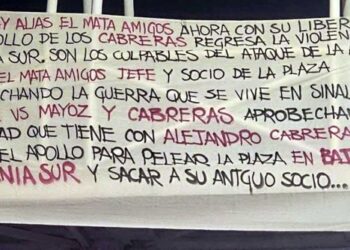 Y ALIAS EL MATA AMIGOS AHORA CON SU LIBER
OLLO DE LOS CABRERAS REGRESA LA VIOLEN
A SUR. SON LOS CULPABLES DEL ATAQUE DE LA
EL MATA AMIGOS JEFE Y SOCIO DE LA PLAZA
CHANDO LA GUERRA QUE SE VIVE EN SINAL
VS MAYOZ Y CABRERAS APROBECHAN
AD QUE TIENE CON ALEJANDRO CABRERA
EL APOLLO PARA PELEAR LA PLAZA EN BAJ
NIA SUR Y SACAR A SU ANTGUO SOCIO...